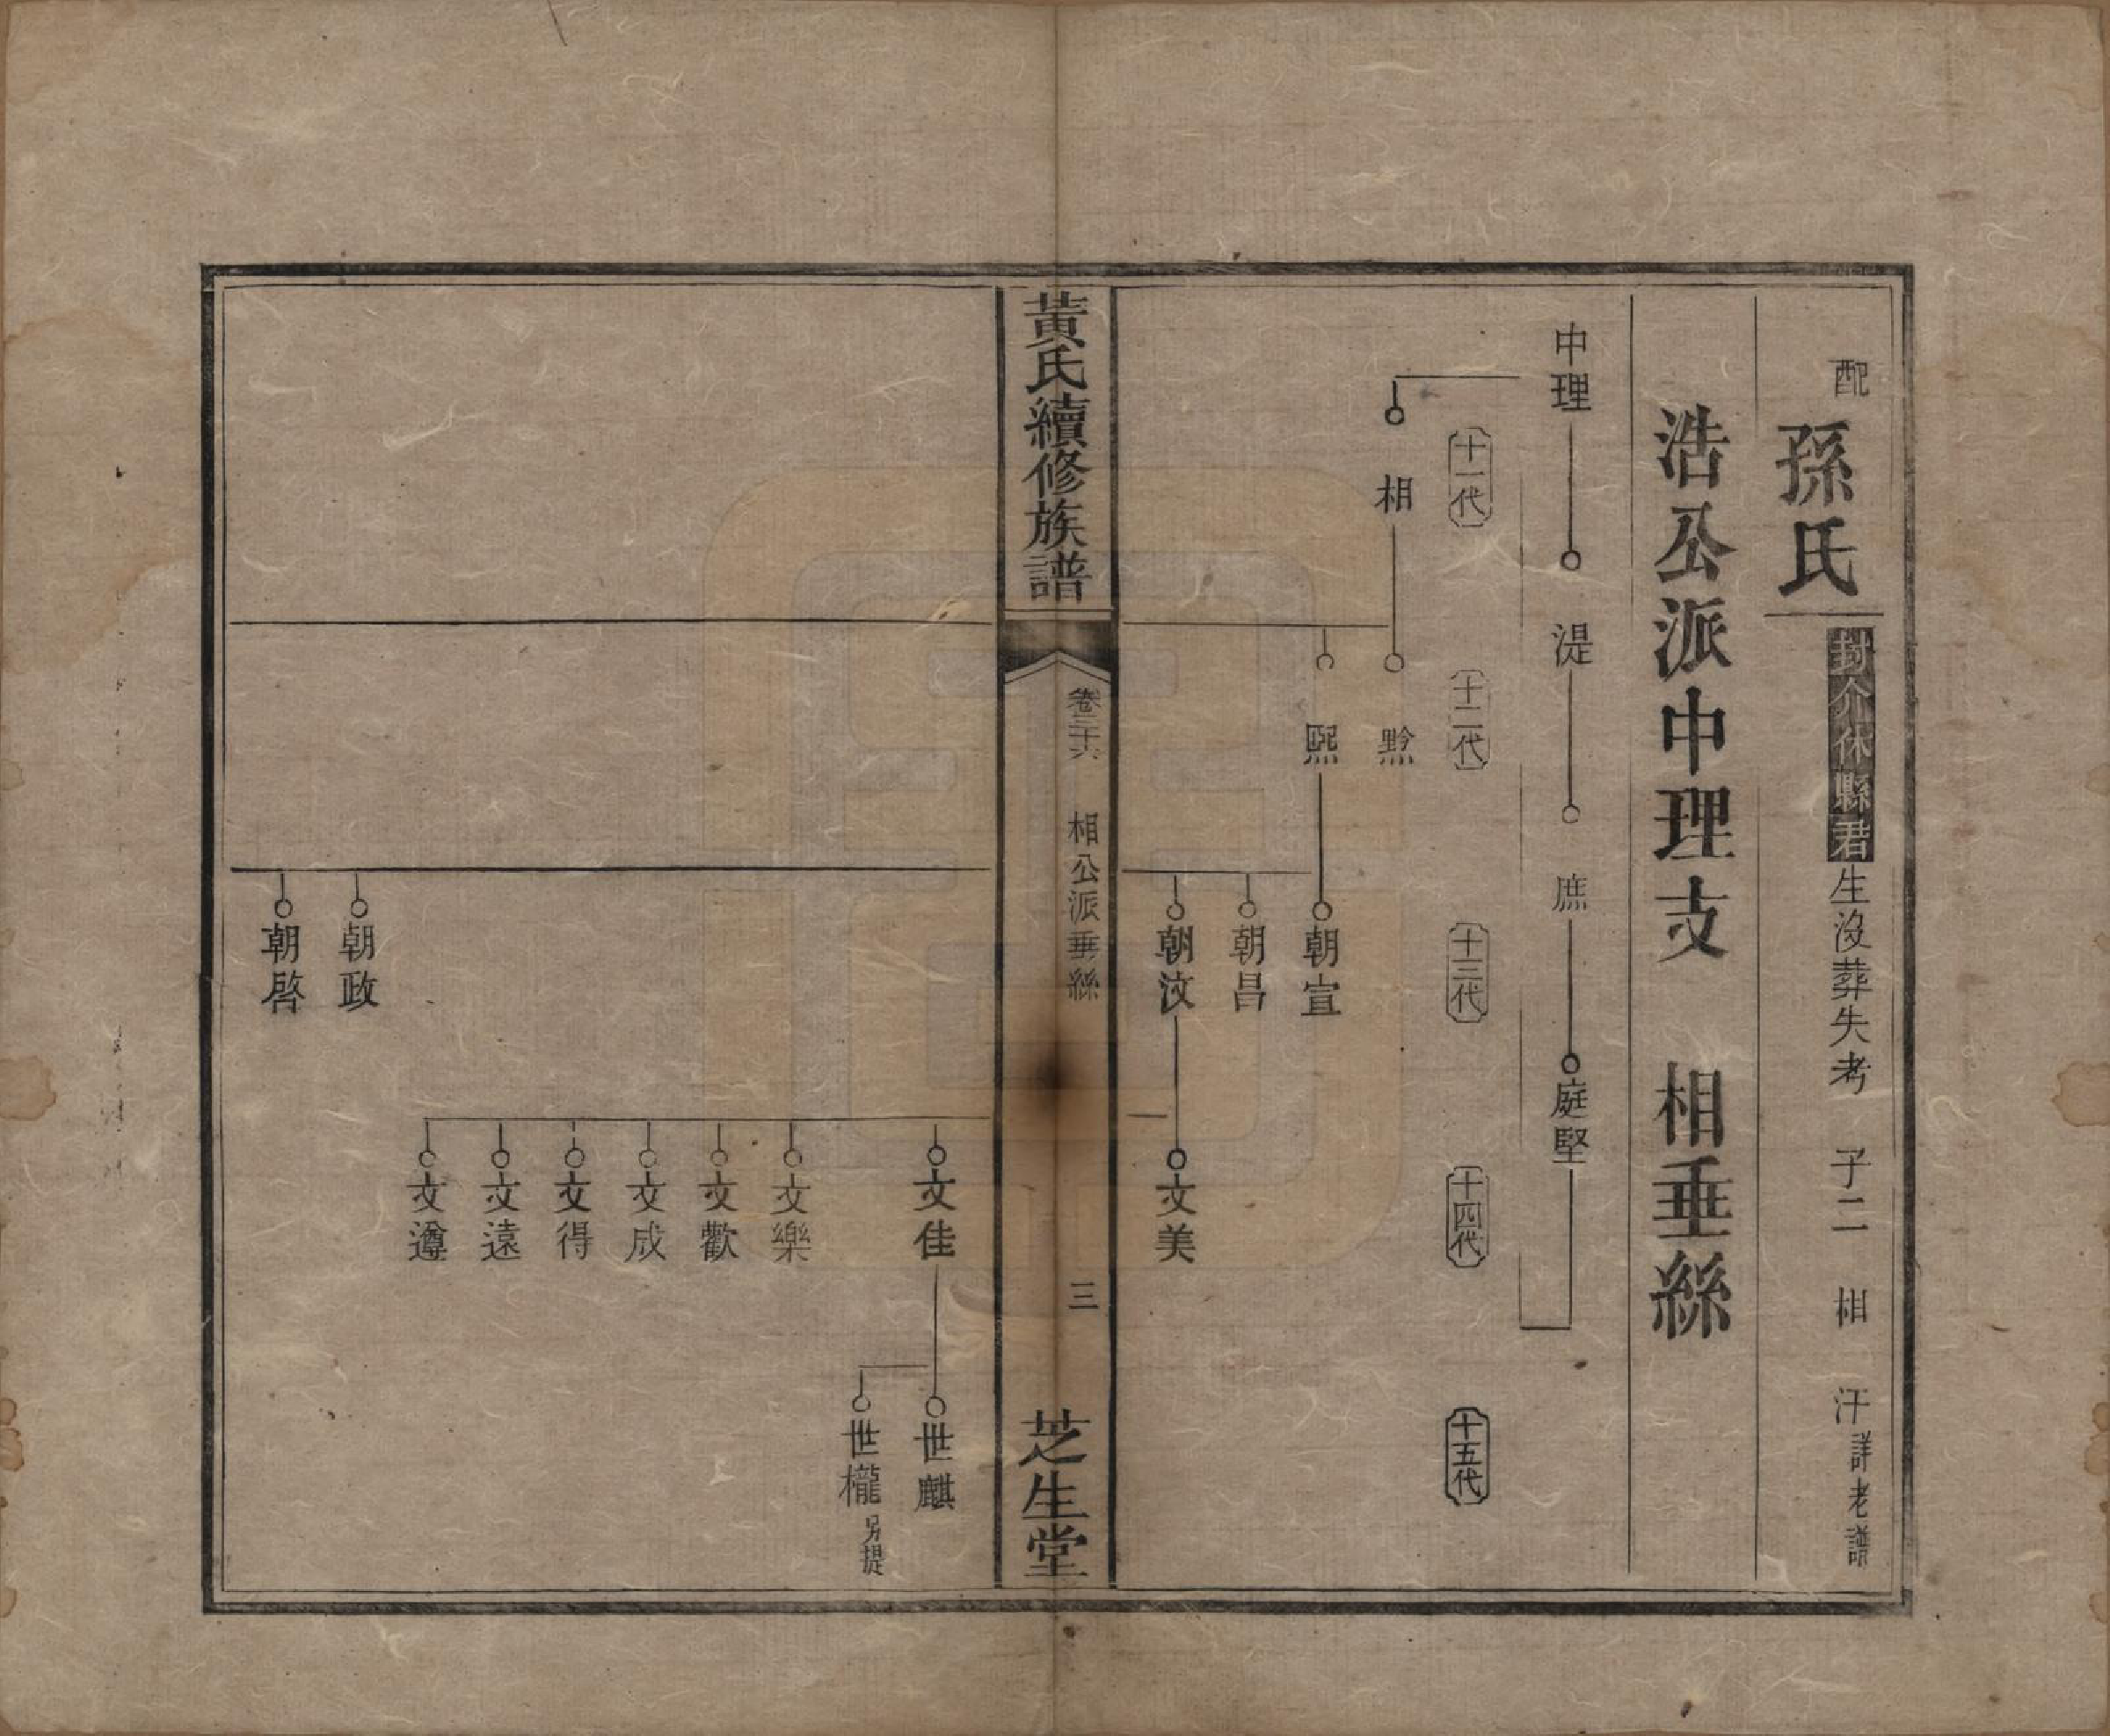 配
孫氏
封介休縣君生沒葬失考 子二 相 汗詳老譜
浩公派中理支 相垂絲
中理 湜 庶 庭堅
十一代 十二代 十三代 十四代 十五代
相 黔
熙 朝宣
朝昌
朝汶 文美
黃氏續修族譜
卷三十六 相公派垂絲 三
芝生堂
文佳 世麒
世櫳 另提
文樂
文歡
文成
文得
文遠
文遵
朝政
朝啓